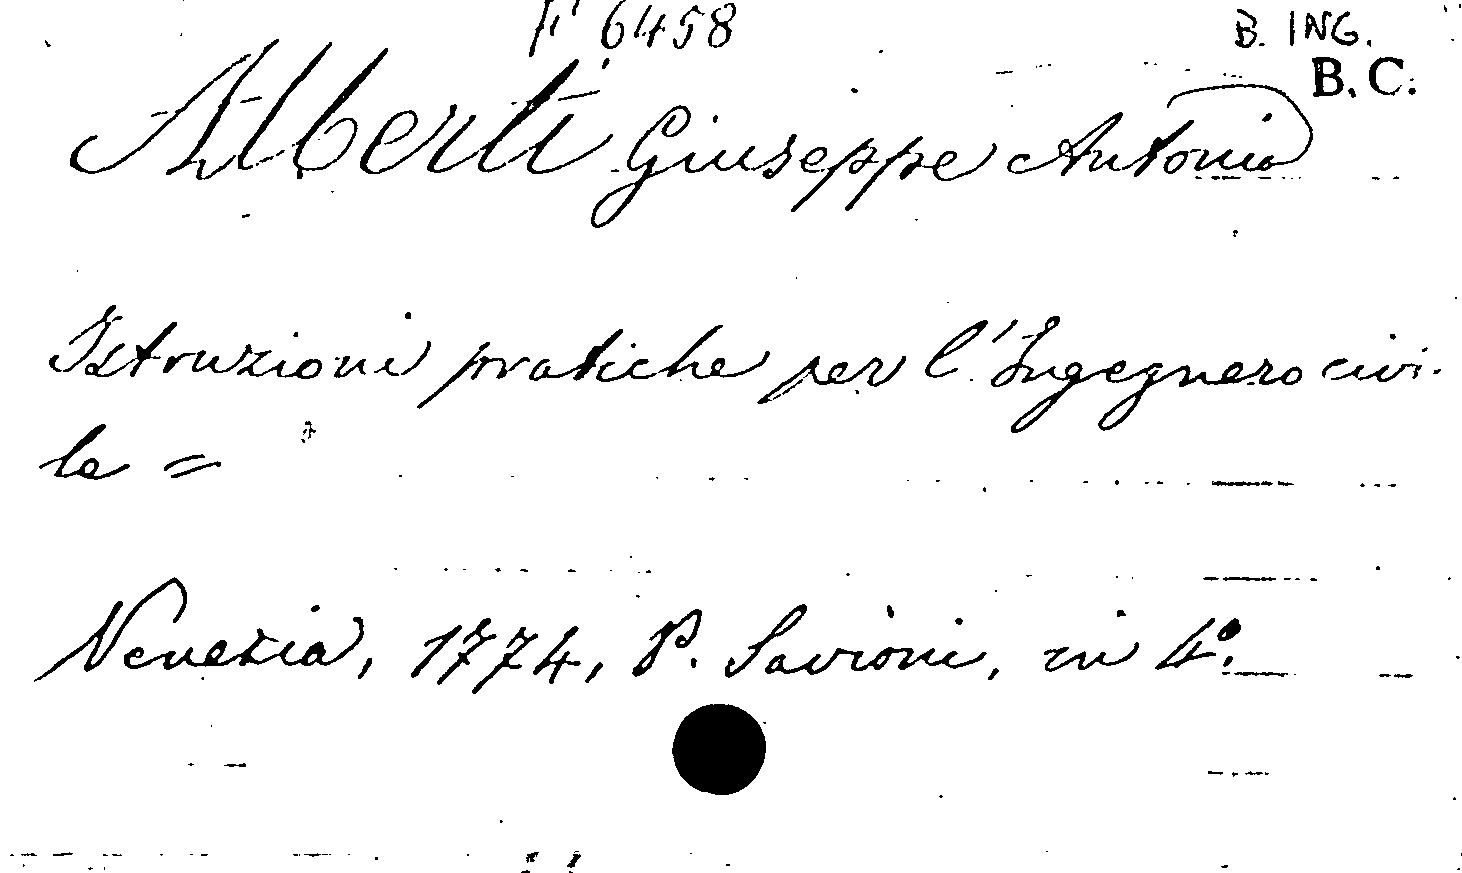 F 6458
B. ING.
B. C.
Alberti Giuseppe Antonio
Istruzioni pratiche per l'Ingegnero civi-
le =
Venezia, 1774, P. Savioni, in 4º.